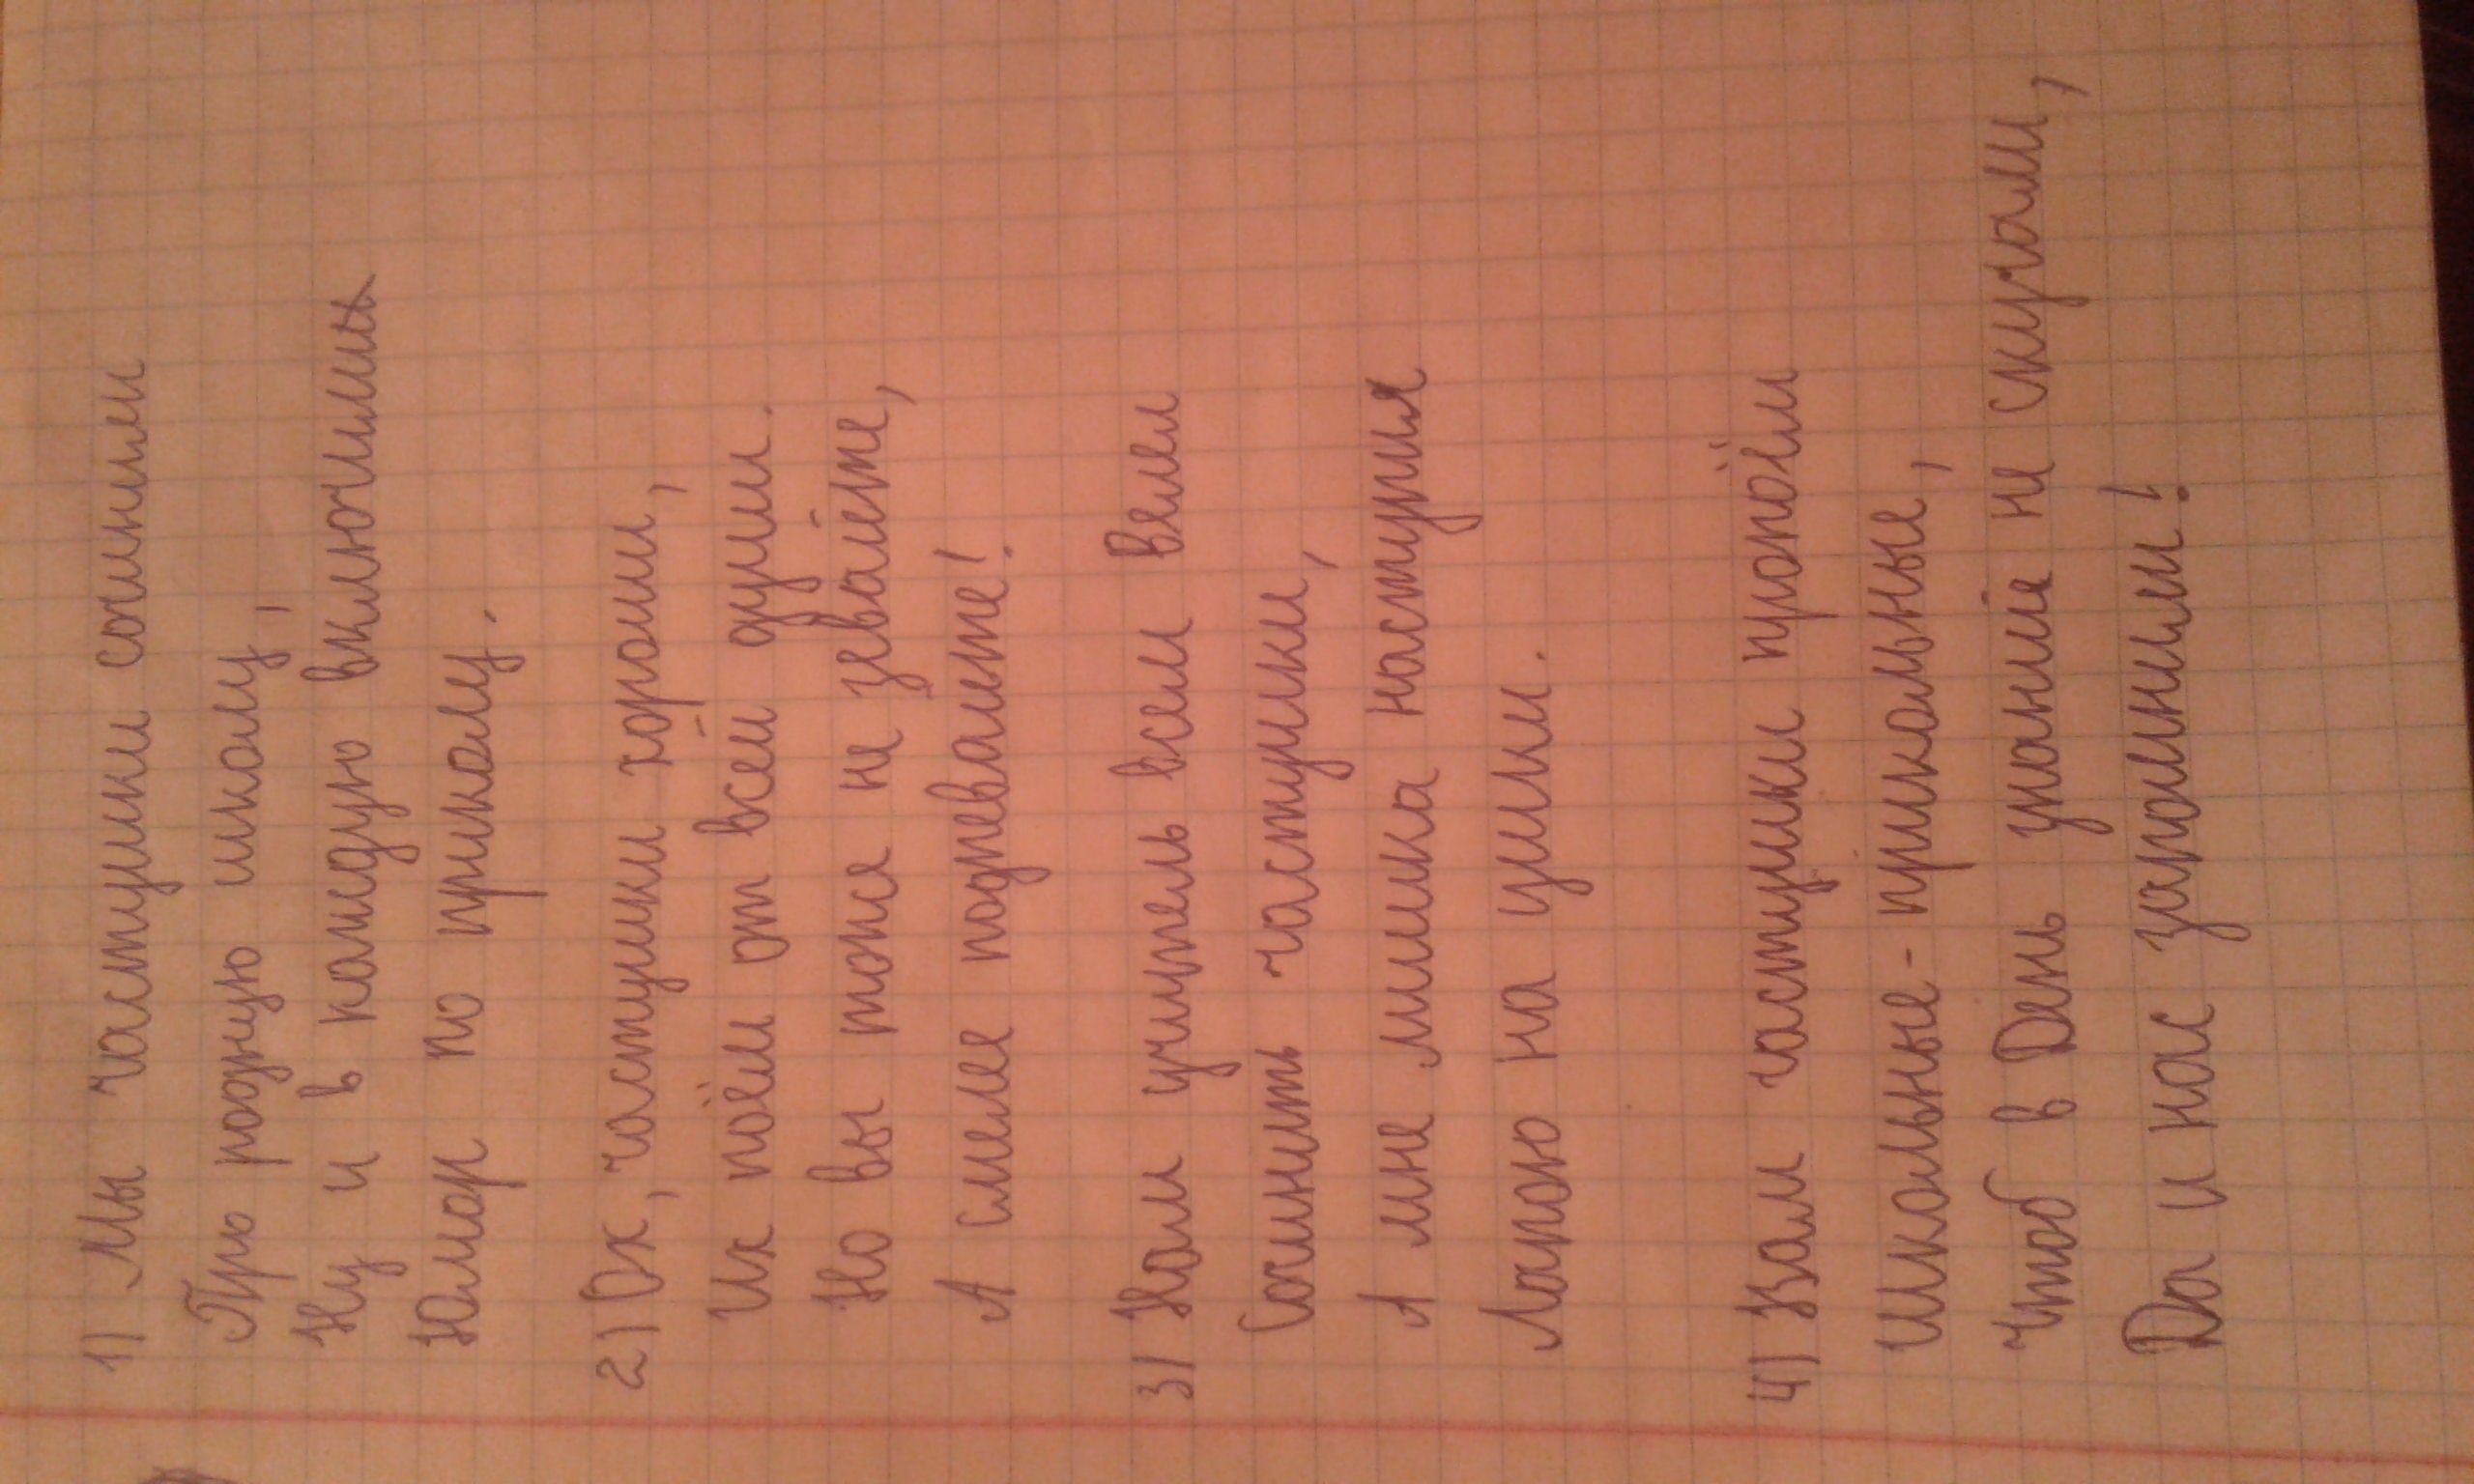 1) Мы частушки сочинили
Про родную школу,
Ну и в каждую включили
Юмор по приколу.
2) Ох, частушки хороши,
Их поём от всей души.
Но вы тоже не зевайте,
А смелее подпевайте!
3) Нам учитель всем велел
Сочинить частушки,
А мне мишка наступил
Лапою на ушки.
4) Вам частушки пропоём
Школьные-прикольные,
Чтоб в День знаний не скучали,
Да и нас запомнили!